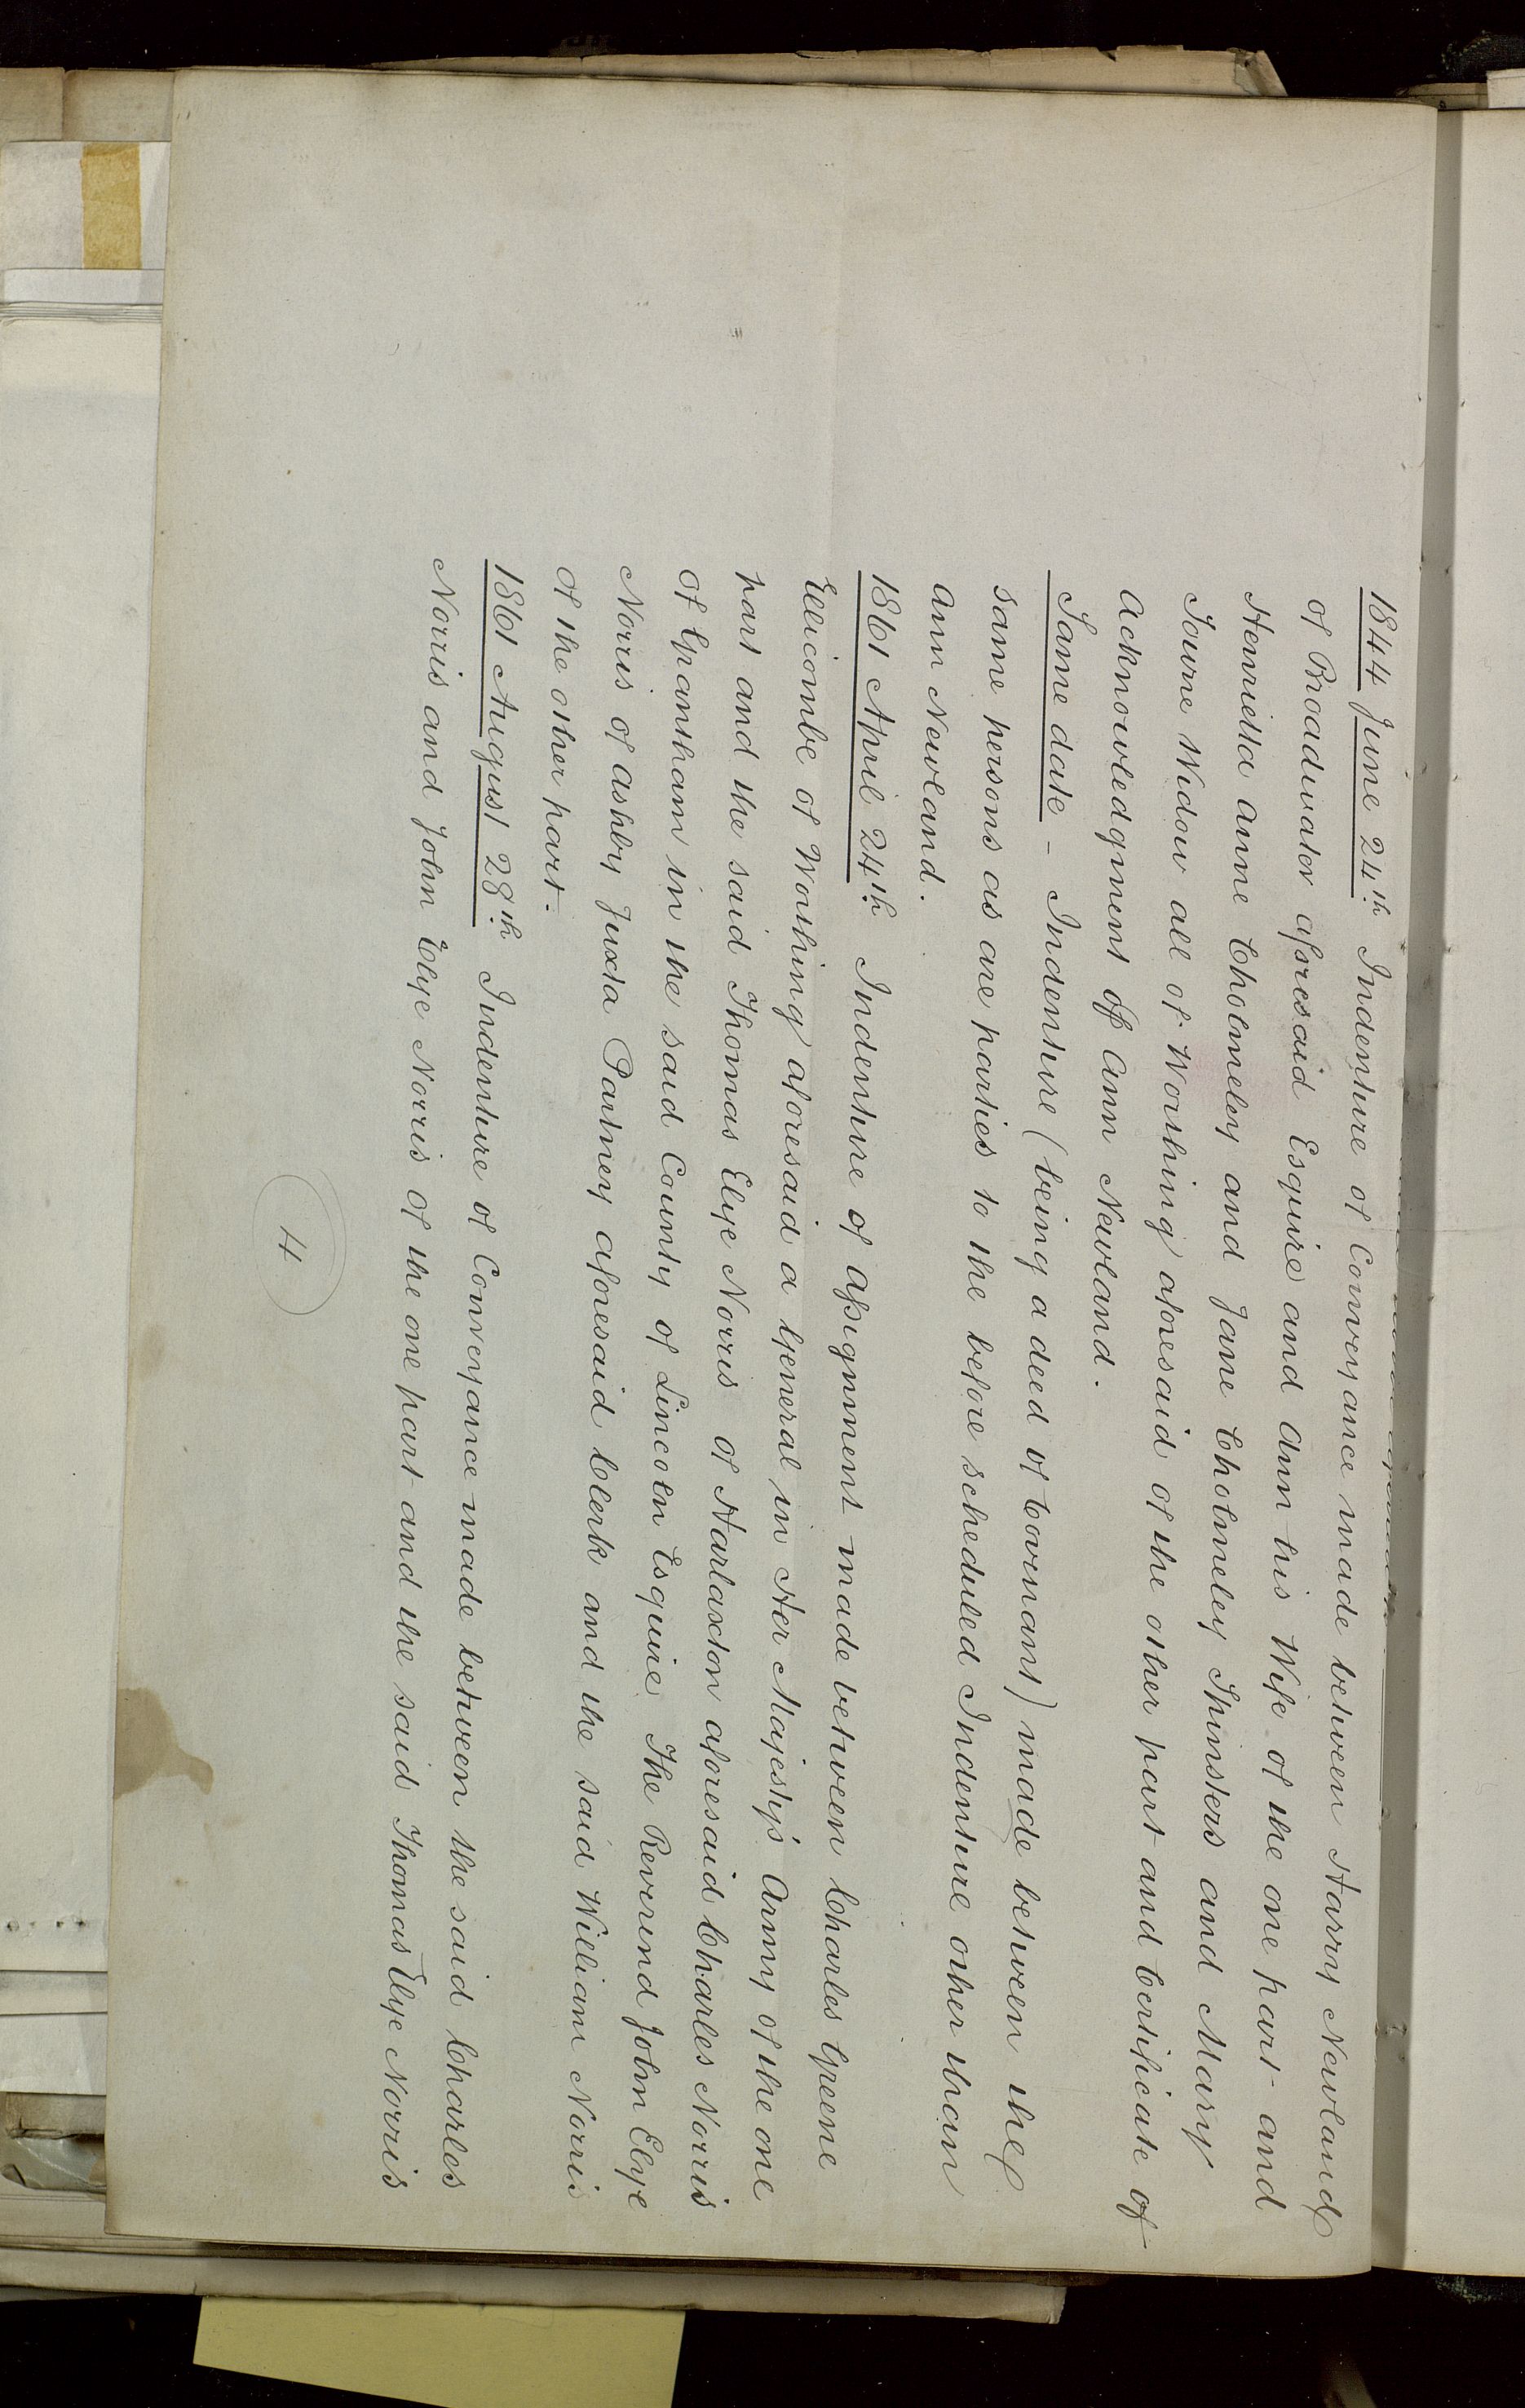 1844 June 24th. Indenture of Conveyance made between Harry Newland
of Broadwater aforesaid Esquire and Ann his Wife of the one part and
Henrietta Anne Cholmeley and Jane Cholmeley Spinsters and Mary
Towne Widow all of Worthing aforesaid of the other part and Certificate of
Acknowledgment of Ann Newland.
Same date - Indenture (being a deed of Covenant) made between the
same persons as are parties to the before scheduled Indenture other than
Ann Newland.
1861 April 24th. Indenture of Assignment made between Charles Greene
Ellicombe of Worthing aforesaid a General in Her Majesty's Army of the one
part and the said Thomas Elye Norris of Harlaxton aforesaid Charles Norris
of Grantham in the said County of Lincoln Esquire The Reverend John Elye
Norris of Ashby Juxta Partney aforesaid Clerk and the said William Norris
of the other part.
1861 August 28th. Indenture of Conveyance made between the said Charles
Norris and John Elye Norris of the one part and the said Thomas Elye Norris
4